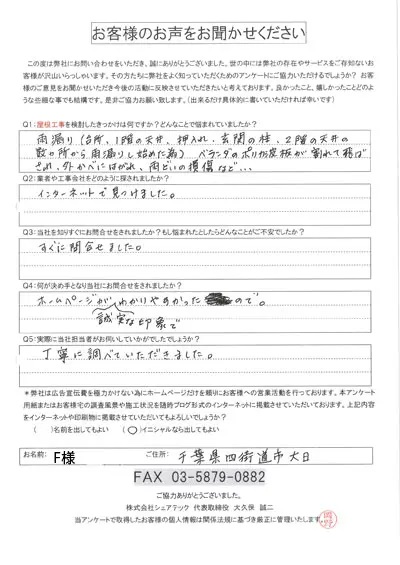 お客様のお声をお聞かせください
この度は弊社にお問い合わせをいただき、誠にありがとうございます。世の中には弊社の存在やサービスをご存知ないお
客様が沢山いらっしゃいます。その方たちに弊社をよく知っていただくためのアンケートにご協力いただけるでしょうか？ お客
様のご意見をお聞かせいただき今後の活動に反映させていただきたいと考えております。良かったこと、嬉しかったことどのよ
うな些細な事でも結構です。是非ご協力お願い致します。（出来るだけ具体的に書いていただければ幸いです）
Q1：屋根工事を検討したきっかけは何ですか？どんなことで悩まれていましたか？
雨漏り（台所、1階の天井、押入れ、玄関の柱、2階の天井の
数ヶ所から雨漏りし始めた為）ベランダのポリカ波板が割れて飛ば
され、外かべにはがれ、雨どいの損傷など...
Q2：業者や工事会社をどのように探されましたか？
インターネットで見つけました。
Q3：当社を知りすぐにお問合せをされましたか？もし悩まれたとしたらどんなことがご不安でしたか？
すぐに問合せました。
Q4：何が決め手となり当社にお問合せをされましたか？
ホームページがわかりやすかったので。
誠実な印象で
Q5：実際に当社担当者がお伺いしていかがでしたでしょうか？
丁寧に調べていただきました。
＊弊社は広告宣伝費を極力かけない為にホームページだけを頼りにお客様への営業活動を行っております。本アンケート
用紙またはお客様宅の調査風景や施工状況を随時ブログ形式のインターネットに掲載させていただいております。上記内容
をインターネットや印刷物に掲載させていただいてもよろしいでしょうか？
（　　）名前を出してもよい　（ ○ ）イニシャルなら出してもよい
お名前： F様 ご住所： 千葉県四街道市大日
FAX 03-5879-0882
ご協力ありがとうございました。
株式会社シェアテック 代表取締役 大久保 誠二
当アンケートで取得したお客様の個人情報は関係法規に基づき厳正に管理いたします。